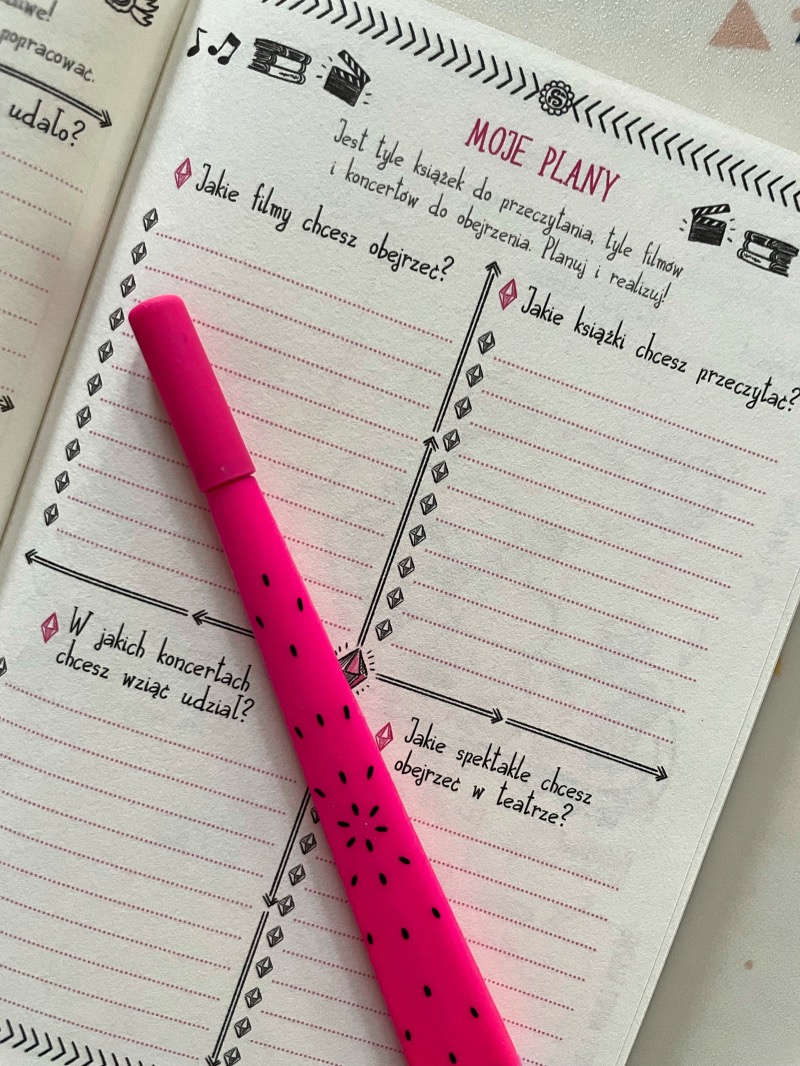 popracować.
udało?
MOJE PLANY
Jest tyle książek do przeczytania, tyle filmów
i koncertów do obejrzenia. Planuj i realizuj!
Jakie filmy chcesz obejrzeć?
Jakie książki chcesz przeczytać?
W jakich koncertach
chcesz wziąć udział?
Jakie spektakle chcesz
obejrzeć w teatrze?